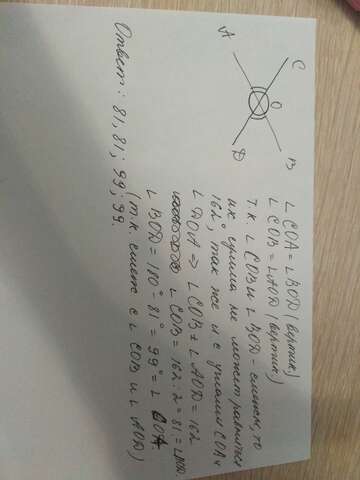 A
C
O
B
D
∠ COA = ∠ BOD (вертик)
∠ COB = ∠ AOD (вертик)
т.к. ∠ COB и ∠ BOD - смежн, то
их сумма не может равняться
162°, так же и с углами COA и
∠ DOA ⇒ ∠ COB + ∠ AOD = 162
∠ COB = 162 : 2 = 81 = ∠ AOD.
∠ BOD = 180° - 81° = 99° = ∠ COA.
(т.к. смежн с ∠ COB и ∠ AOD)
Ответ: 81, 81; 99; 99.